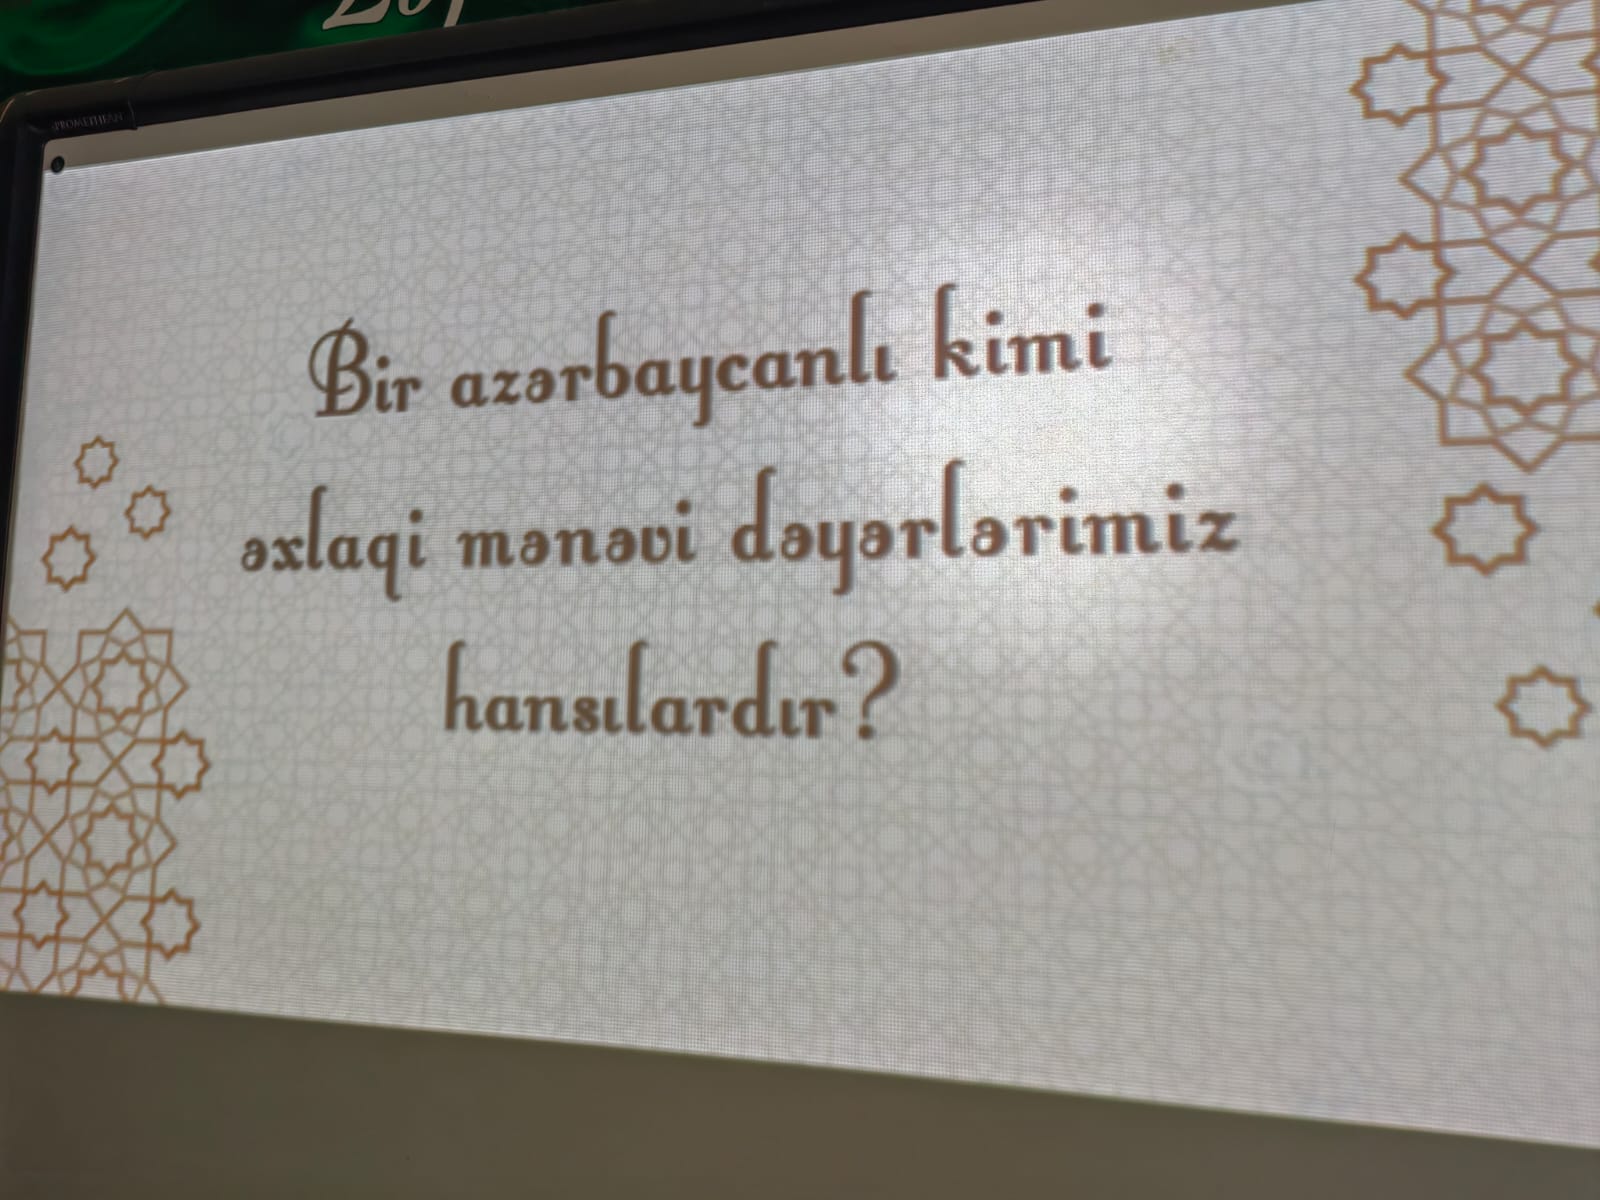 PROMETHEAN
Bir azərbaycanlı kimi
əxlaqi mənəvi dəyərlərimiz
hansılardır?